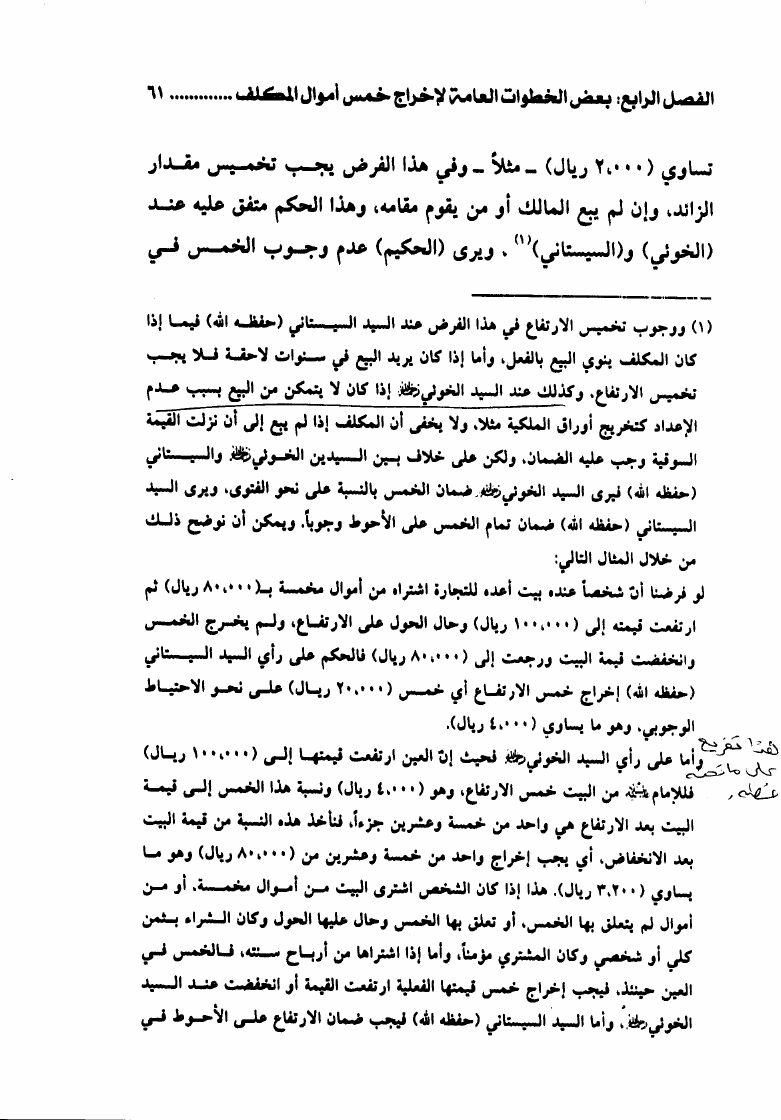 الفصل الرابع: بعض الخطوات العامة لإخراج خمس أموال المكلف ............. ٦١
تساوي (٢,٠٠٠ ريال) ـ مثلاً ـ وفي هذا الفرض يجب تخميس مقدار
الزائد، وإن لم يبع المالك أو من يقوم مقامه، وهذا الحكم متفق عليه عند
(الخوئي) و(السيستاني)(١). ويرى (الحكيم) عدم وجوب الخمس في
(١) ووجوب تخميس الارتفاع في هذا الفرض عند السيد السيستاني (حفظه الله) فيما إذا
كان المكلف ينوي البيع بالفعل، وأما إذا كان يريد البيع في سنوات لاحقة فلا يجب
تخميس الارتفاع، وكذلك عند السيد الخوئي إذا كان لا يتمكن من البيع بسبب عدم
الإعداد كتخريج أوراق الملكية مثلا، ولا يخفى أن المكلف إذا لم يبع إلى أن نزلت القيمة
السوقية وجب عليه الضمان، ولكن على خلاف بين السيدين الخوئي والسيستاني
(حفظه الله) فيرى السيد الخوئي ضمان الخمس بالنسبة على نحو الفتوى، ويرى السيد
السيستاني (حفظه الله) ضمان تمام الخمس على الأحوط وجوباً. ويمكن أن نوضح ذلك
من خلال المثال التالي:
لو فرضنا أن شخصاً عنده بيت أعده للتجارة اشتراه من أموال مخمسة بـ(٨٠,٠٠٠ ريال) ثم
ارتفعت قيمته إلى (١٠٠,٠٠٠ ريال) وحال الحول على الارتفاع، ولم يخرج الخمس
وانخفضت قيمة البيت ورجعت إلى (٨٠,٠٠٠ ريال) فالحكم على رأي السيد السيستاني
(حفظه الله) إخراج خمس الارتفاع أي خمس (٢٠,٠٠٠ ريال) على نحو الاحتياط
الوجوبي، وهو ما يساوي (٤,٠٠٠ ريال).
وأما على رأي السيد الخوئي فحيث إن العين ارتفعت قيمتها إلى (١٠٠,٠٠٠ ريال)
فللإمام من البيت خمس الارتفاع، وهو (٤,٠٠٠ ريال) ونسبة هذا الخمس إلى قيمة
البيت بعد الارتفاع هي واحد من خمسة وعشرين جزءاً، فنأخذ هذه النسبة من قيمة البيت
بعد الانخفاض، أي يجب إخراج واحد من خمسة وعشرين من (٨٠,٠٠٠ ريال) وهو ما
يساوي (٣,٢٠٠ ريال). هذا إذا كان الشخص اشترى البيت من أموال مخمسة، أو من
أموال لم يتعلق بها الخمس، أو تعلق بها الخمس وحال عليها الحول وكان الشراء بثمن
كلي أو شخصي وكان المشتري مؤمناً، وأما إذا اشتراها من أرباح سنته، فالخمس في
العين حينئذ، فيجب إخراج خمس قيمتها الفعلية ارتفعت القيمة أو انخفضت عند السيد
الخوئي، وأما السيد السيستاني (حفظه الله) فيجب ضمان الارتفاع على الأحوط في